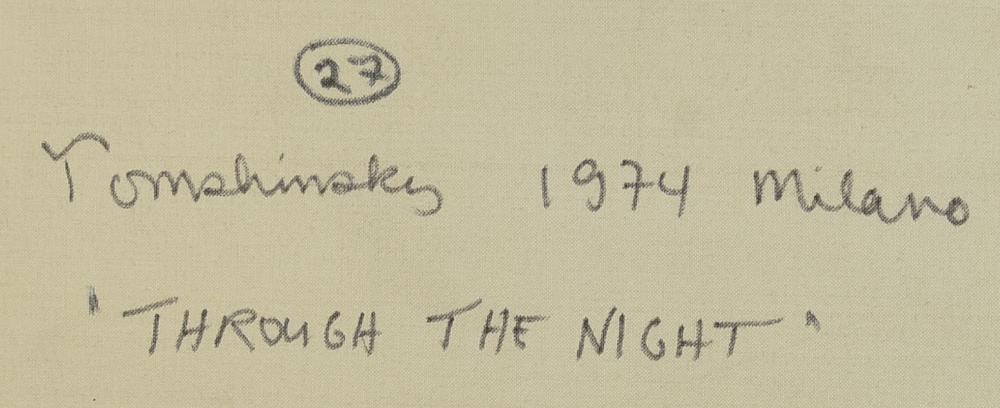 27
Tomshinsky 1974 Milano
'THROUGH THE NIGHT'